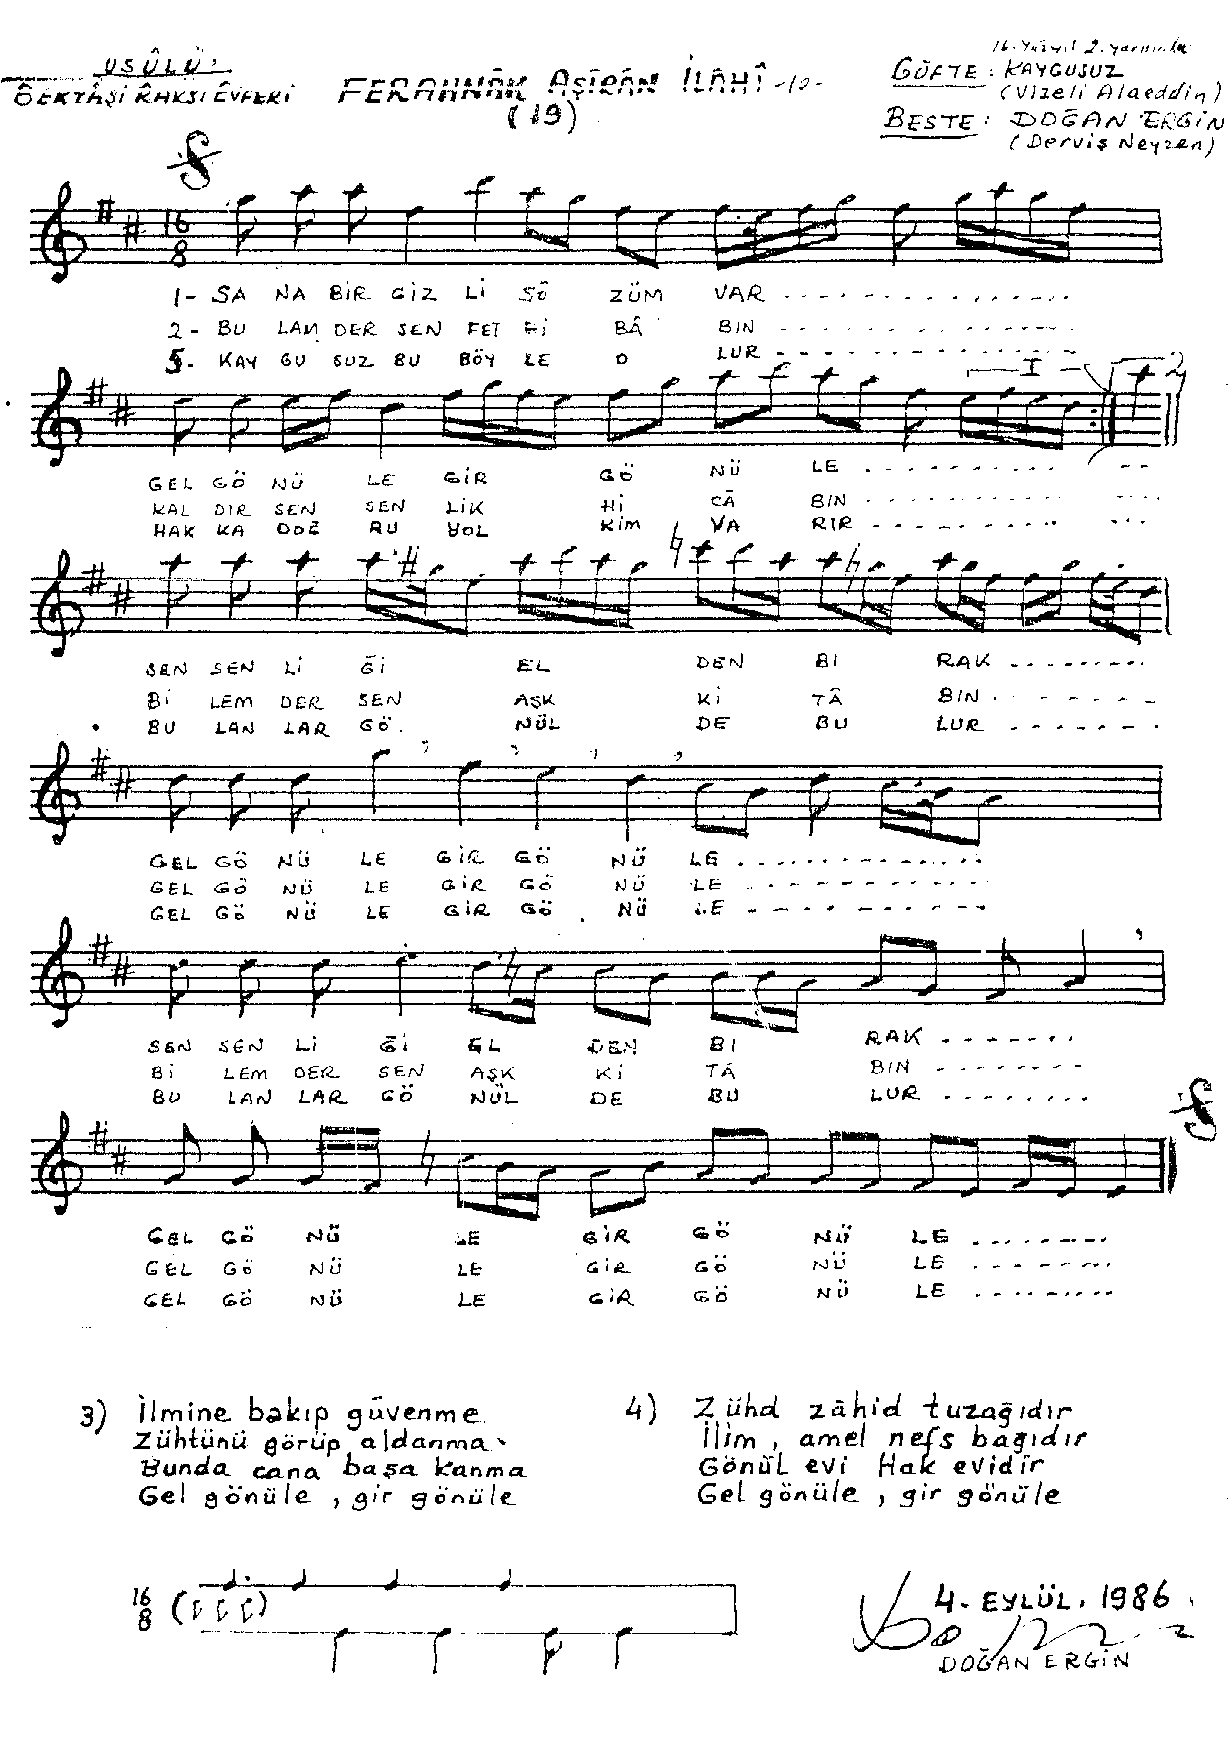 16. Yüzyıl 2. yarısında
USÛLÜ:
BEKTÂŞİ RAKSI EVFERİ
FERAHNÂK AŞİRÂN İLÂHÎ -10-
(19)
GÜFTE: KAYGUSUZ
(Vizeli Alaeddin)
BESTE: DOĞAN ERGİN
(Derviş Neyzen)
16
8
1- SA NA BİR GİZ Lİ SÖ ZÜM VAR
2- BU LAM DER SEN FET Hİ BÂ BIN
5- KAY GU SUZ BU BÖY LE O LUR
I 2
GEL GÖ NÜ LE GİR GÖ NÜ LE
KAL DIR SEN SEN LİK Hİ CÂ BIN
HAK KA DOĞ RU YOL KİM VA RIR
SEN SEN Lİ Ğİ EL DEN BI RAK
Bİ LEM DER SEN AŞK Kİ TÂ BIN
BU LAN LAR GÖ NÜL DE BU LUR
GEL GÖ NÜ LE GİR GÖ NÜ LE
GEL GÖ NÜ LE GİR GÖ NÜ LE
GEL GÖ NÜ LE GİR GÖ NÜ LE
SEN SEN Lİ Ğİ EL DEN BI RAK
Bİ LEM DER SEN AŞK Kİ TÂ BIN
BU LAN LAR GÖ NÜL DE BU LUR
GEL GÖ NÜ LE GİR GÖ NÜ LE
GEL GÖ NÜ LE GİR GÖ NÜ LE
GEL GÖ NÜ LE GİR GÖ NÜ LE
3) İlmine bakıp güvenme
Zühtünü görüp aldanma
Bunda cana başa kanma
Gel gönüle, gir gönüle
4) Zühd zâhid tuzağıdır
İlim, amel nefs bağıdır
Gönül evi Hak evidir
Gel gönüle, gir gönüle
16
8
4. EYLÜL. 1986
DOĞAN ERGİN